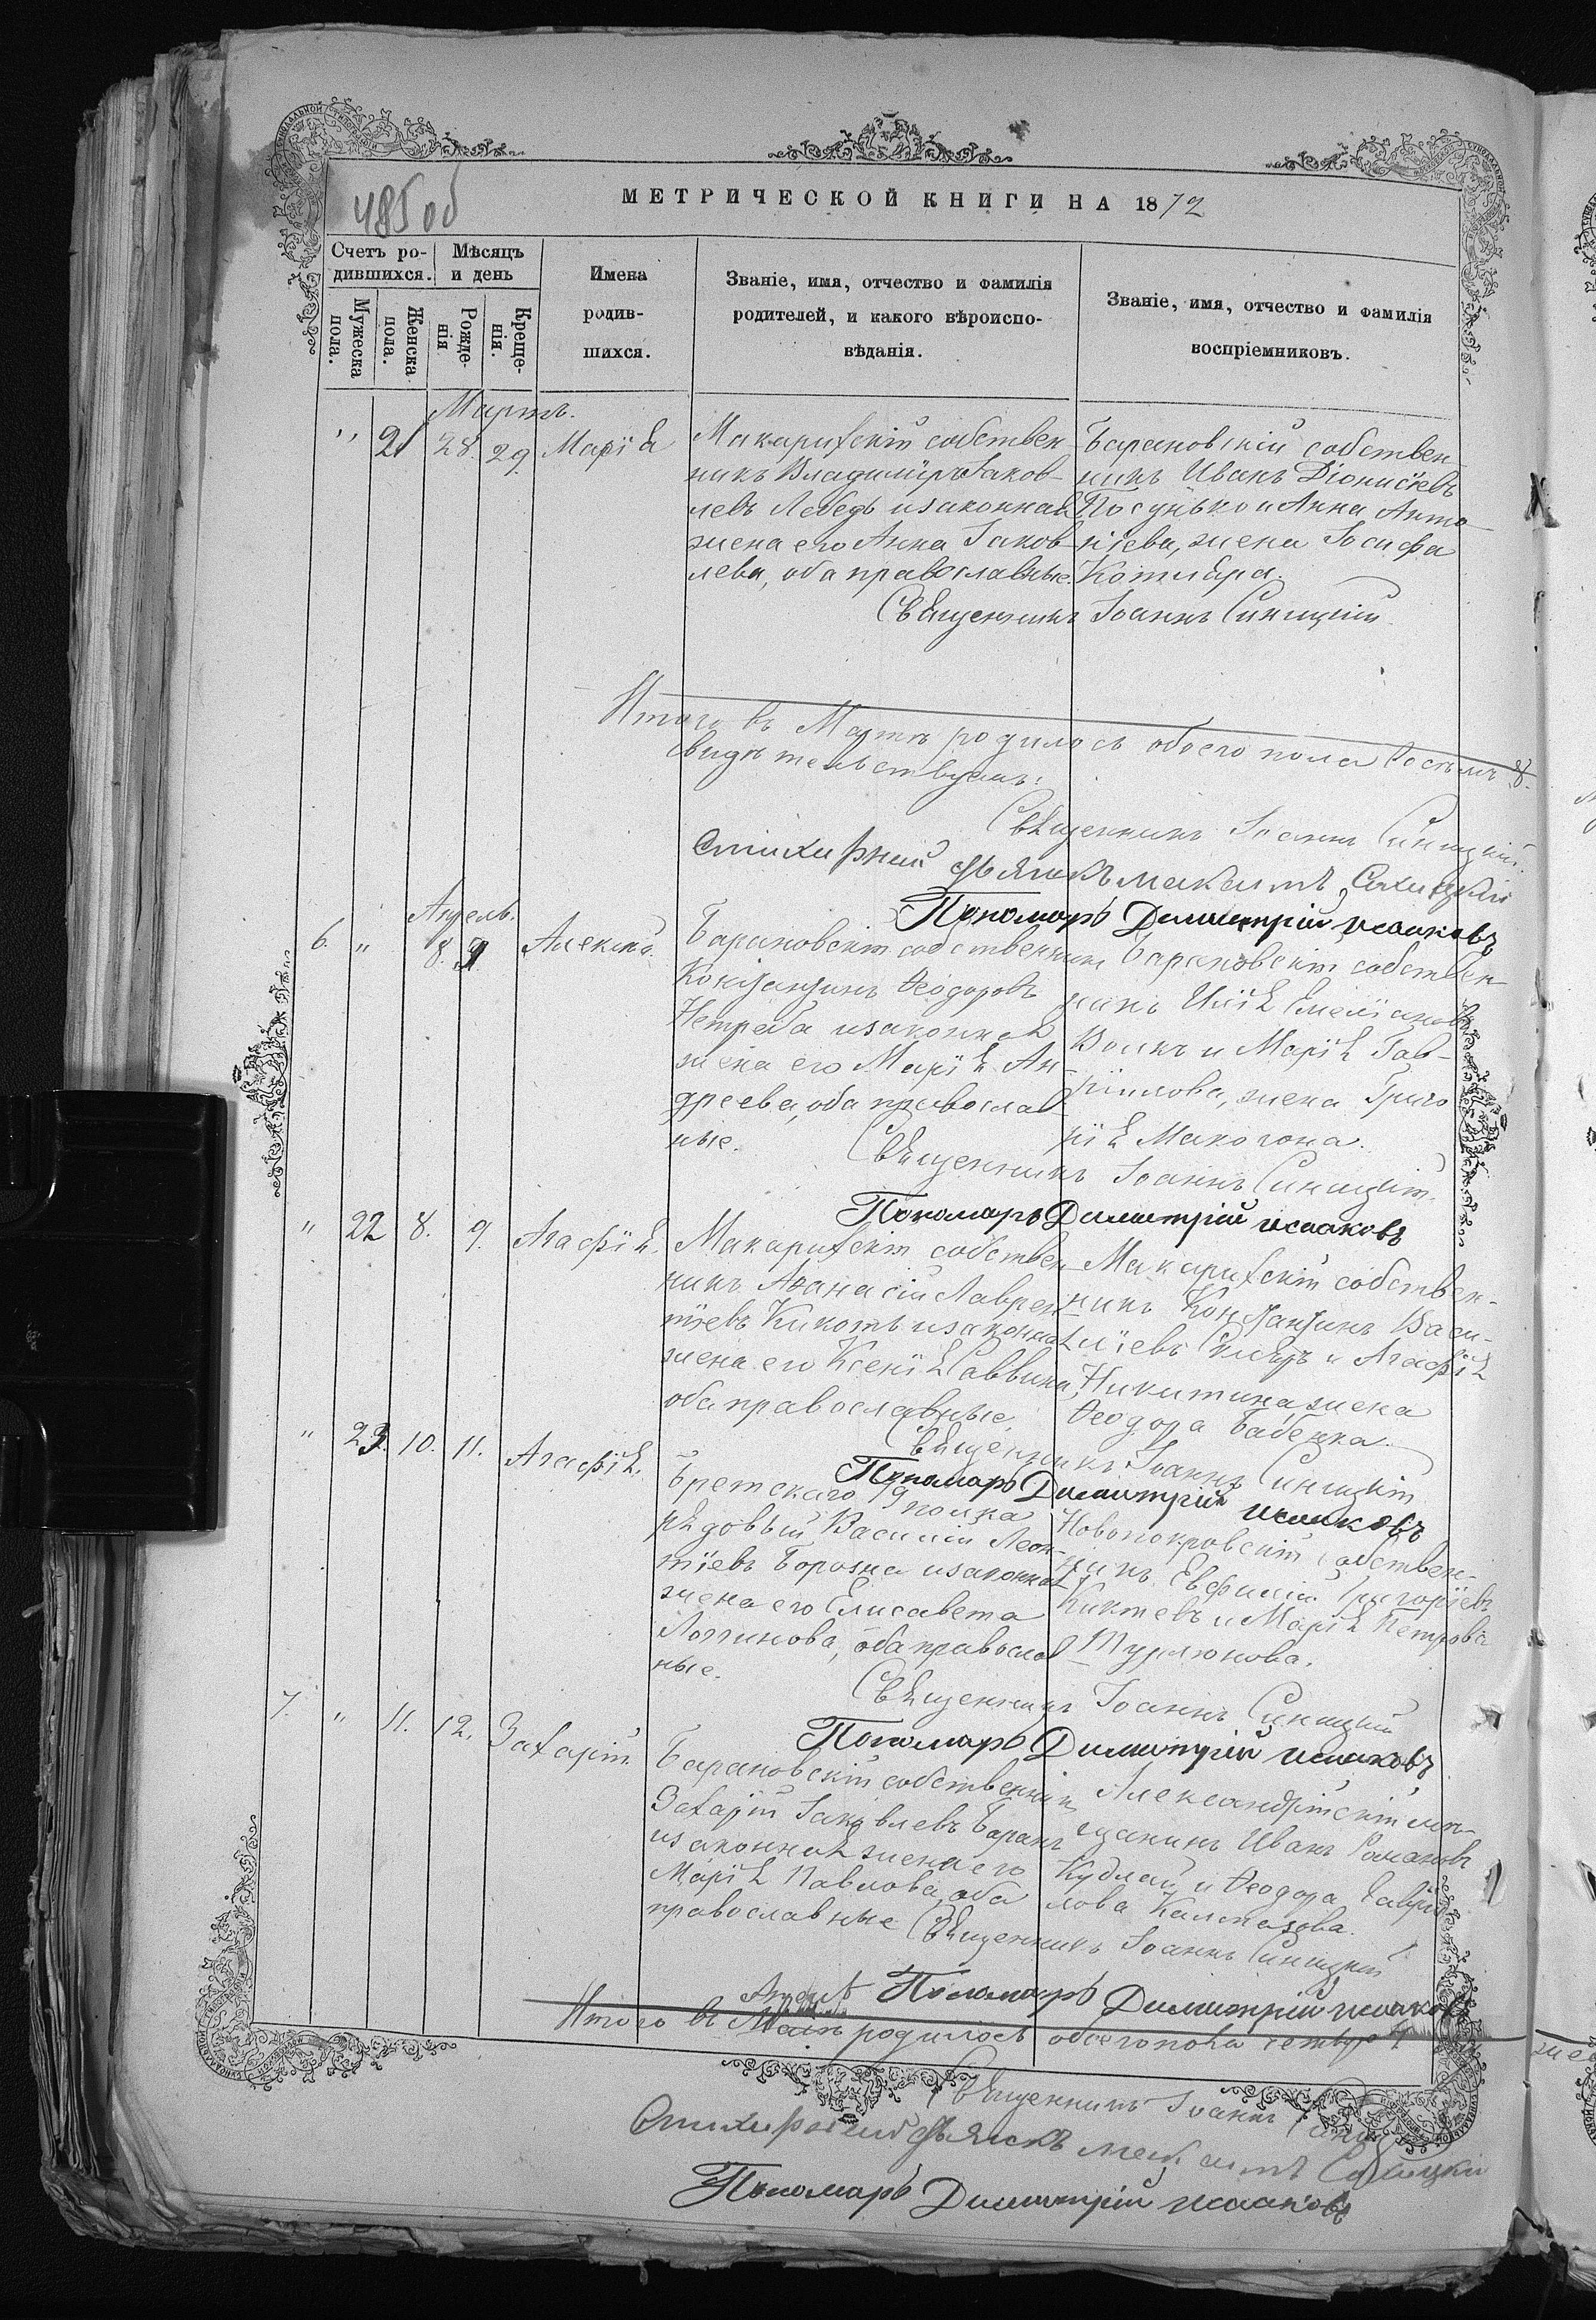 485 об
МЕТРИЧЕСКОЙ КНИГИ НА 1872
Счетъ ро-
дившихся.
Мѣсяцъ
и день
Мужеска
пола.
Женска
пола.
Рожде-
нія
Креще-
нія.
Имена
родив-
шихся.
Званіе, имя, отчество и фамилія
родителей, и какого вѣроиспо-
вѣданія.
Званіе, имя, отчество и фамилія
воспріемниковъ.
Мартъ.
" 21 28. 29. Марія
Макарихскій собствен-
никъ Владиміръ Іаков-
левъ Лебедь и законная
жена его Анна Іаков-
лева, оба православные.
Барановскій собствен-
никъ Иванъ Діонисіевъ
Посунько и Анна Анто-
ніева, жена Іосифа
Котляра.
Священникъ Іоаннъ Синицкій
Итого въ Мартѣ родилось обоего пола восемь 8.
свидѣтельствуемъ:
Священникъ Іоаннъ Синицкій.
Стихирный дьячокъ
Пономарь Димитрій Исааковъ
Апрель.
6. " 8. 9. Алексій.
Барановскій собственникъ
Константинъ Ѳеодоровъ
Нетреба и законная
жена его Марія Ан-
дреева, оба православ-
ные.
Барановскій собствен-
никъ Илія Емеліановъ
Волкъ и Марія Гав-
ріилова, жена Григо-
рія Макогона.
Священникъ Іоаннъ Синицкій.
Пономарь Димитрій Исааковъ
" 22 8. 9. Агафія.
Макарихскій собствен-
никъ Аѳанасій Лаврен-
тіевъ Кикоть и законная
жена его Ксенія Саввина,
оба православные.
Макарихскій собствен-
никъ Константинъ Васи-
ліевъ Скляръ и Агафія
Никитина, жена
Ѳеодора Бабенка.
Священникъ Іоаннъ Синицкій
Пономарь Димитрій Исааковъ
" 23. 10. 11. Агафія.
полка
рядовый Василій Леон-
тіевъ Борозна и законная
жена его Елисавета
Логгинова, оба православ-
ные.
Новопокровскій собствен-
никъ Евфимій Григоріевъ
Киктевъ и Марія Петрова
Священникъ Іоаннъ Синицкій
Пономарь Димитрій Исааковъ
7. " 11. 12. Захарій
Барановскій собственникъ
Захарій Іаковлевъ Баранъ
и законная жена его
Марія Павлова, оба
православные
Александрійскій мѣ-
щанинъ Иванъ Романовъ
Кудлай и Ѳеодора Гаврі-
лова Калмазова.
Священникъ Іоаннъ Синицкій
Пономарь Димитрій Исааковъ
Апрелѣ
Итого въ родилось обоего пола 4
Священникъ Іоаннъ
Стихирный дьячокъ
Пономарь Димитрій Исааковъ